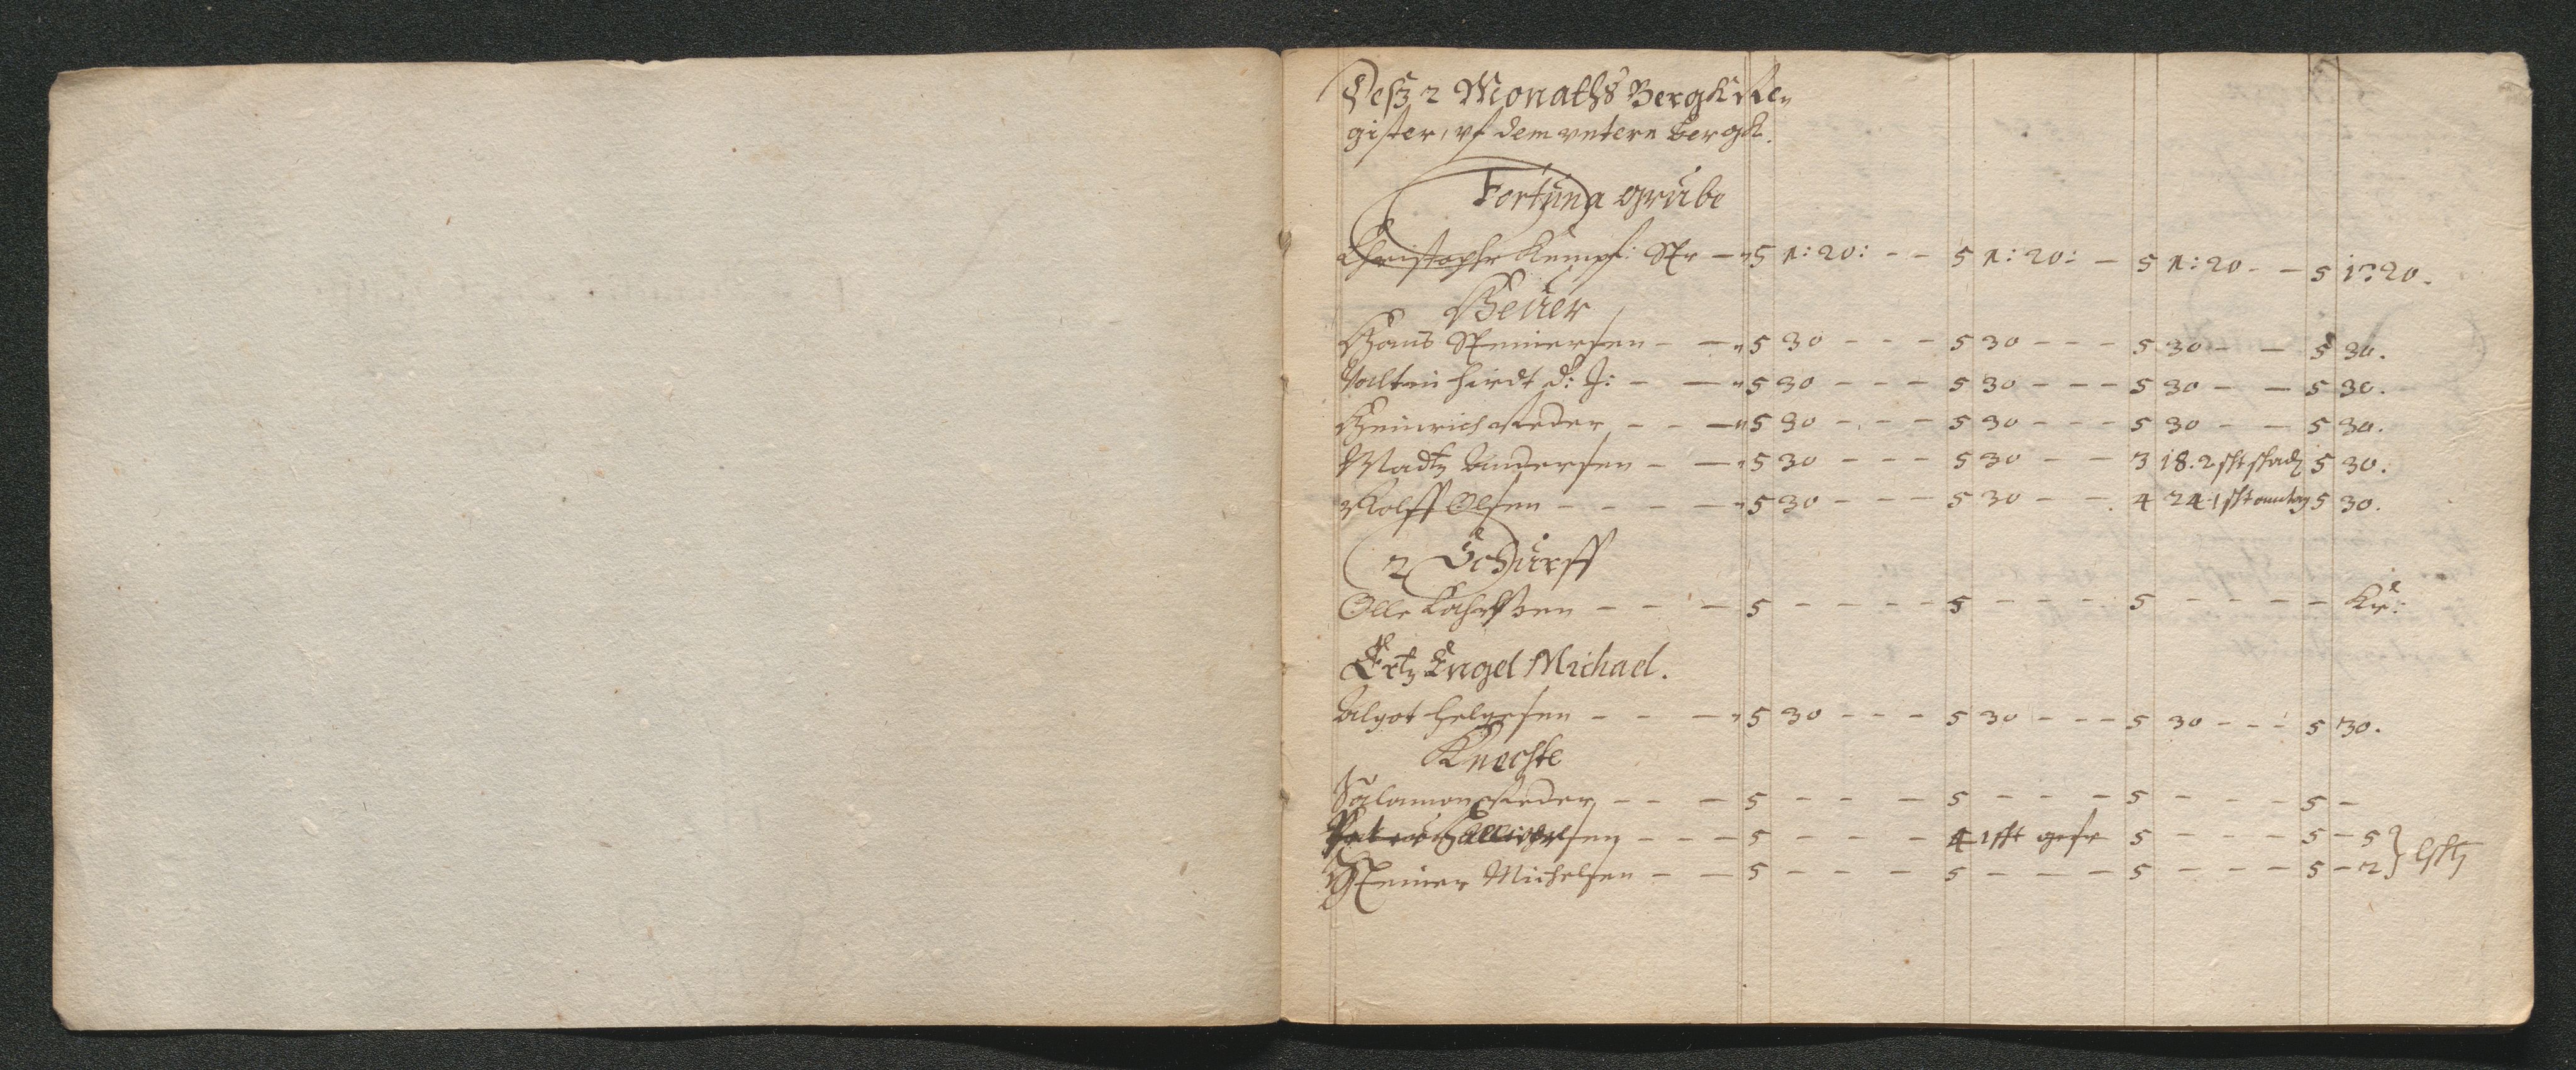 Deß 2 Monaths Bergk Re,,
gister, vf dem vntern Bergk.
Fortuna grube
Christopher Kempf: Str — 5 1:20: - - 5 1:20: - 5 1:20 - - 5 1:20.
Heüer
Hans Steinersen - — 5 30 - - - 5 30 - - - 5 30 - — 5 30.
Valtin hirdt d: J: - — 5 30 - - - 5 30 - - - 5 30 - — 5 30.
Heinrich Reder - - — 5 30 - - - 5 30 - - - 5 30 - — 5 30.
Madtz Andersen - — 5 30 - - - 5 30 - - 3 18. 2 sht 5 30.
Rolff Olsen - - - — 5 30 - - - 5 30 - - 4 24 1 sht 5 30.
2 Schürff
Olle - - - 5 - - - - 5 - - - - 5 - - - - -
Ertz Engel Michael.
helgesen - - - 5 30 - - - 5 30 - - - 5 30 - - - 5 30.
Knechte
Salamon Reder - - - 5 - - - 5 - - - 5 - - - 5 -
- - - 5 - - - - 4 1 sht 5 - - - 5 - 5
Steiner Michelsen - - 5 - - - - 5 - - - - 5 - - - 5 - 2